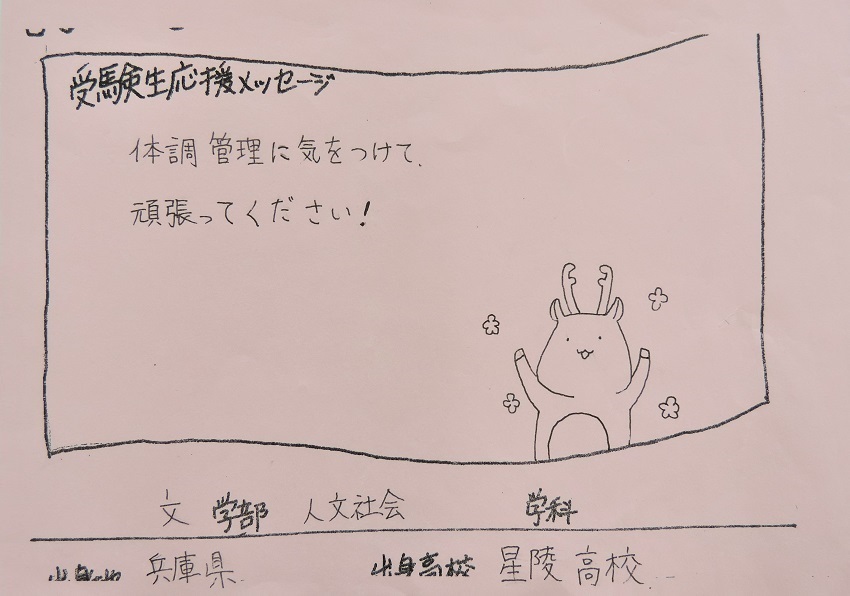 受験生応援メッセージ
体調管理に気をつけて、
頑張ってください!
文 学部 人文社会 学科
出身地 兵庫県 出身高校 星陵高校